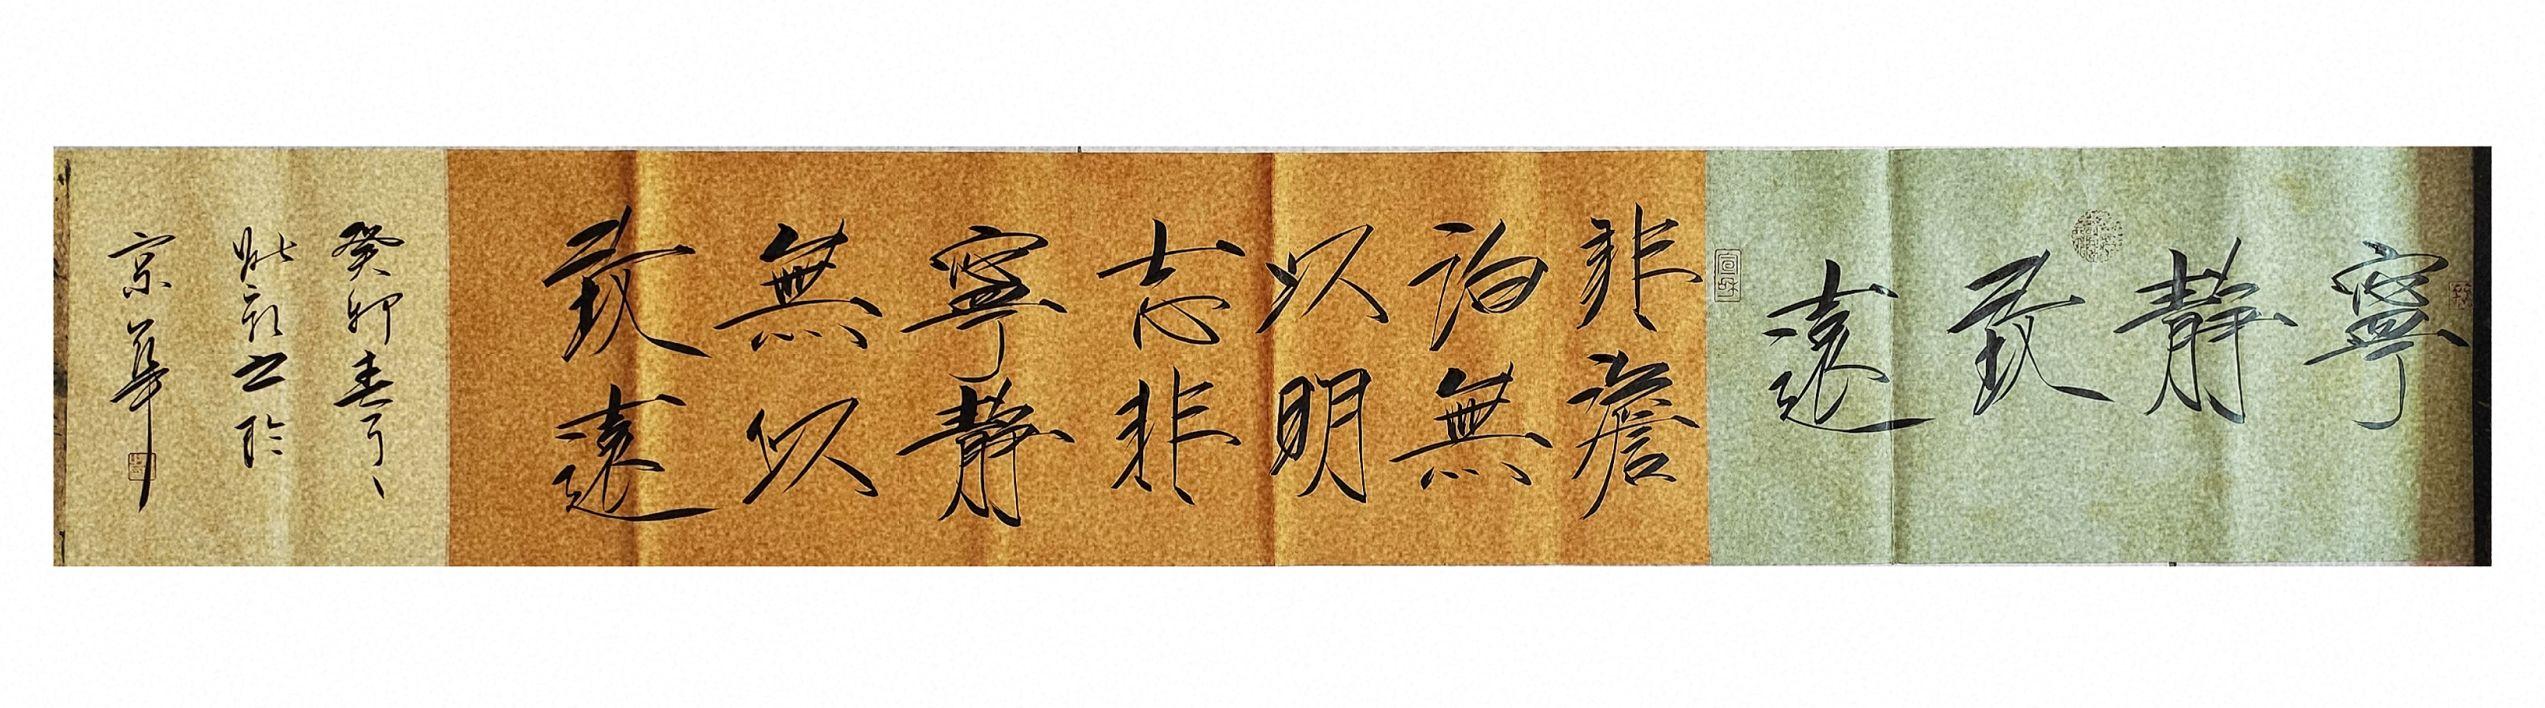 寧静致遠
宣和
非澹
泊無
以明
志非
寧静
無以
致遠
癸卯春
之於
京華